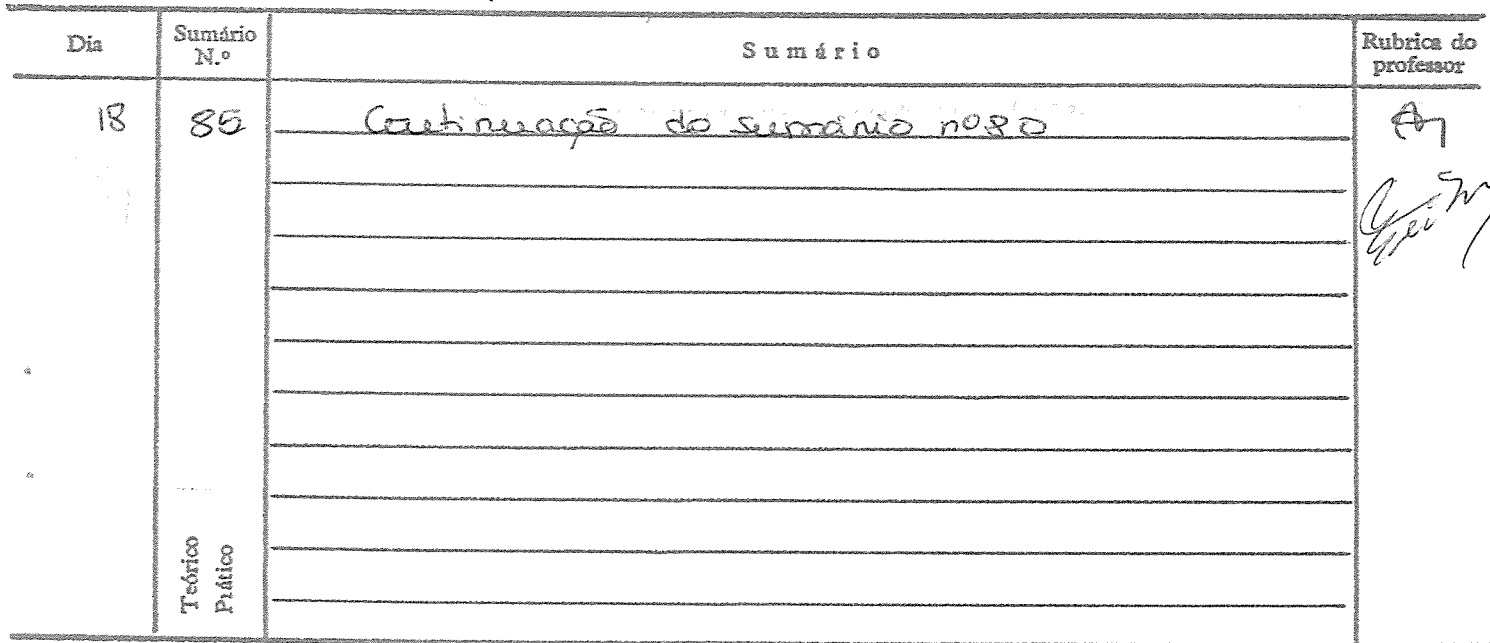 Dia Sumário N.º Sumário Rubrica do professor
18 85 Continuação do sumário nº 80
Teórico
Prático